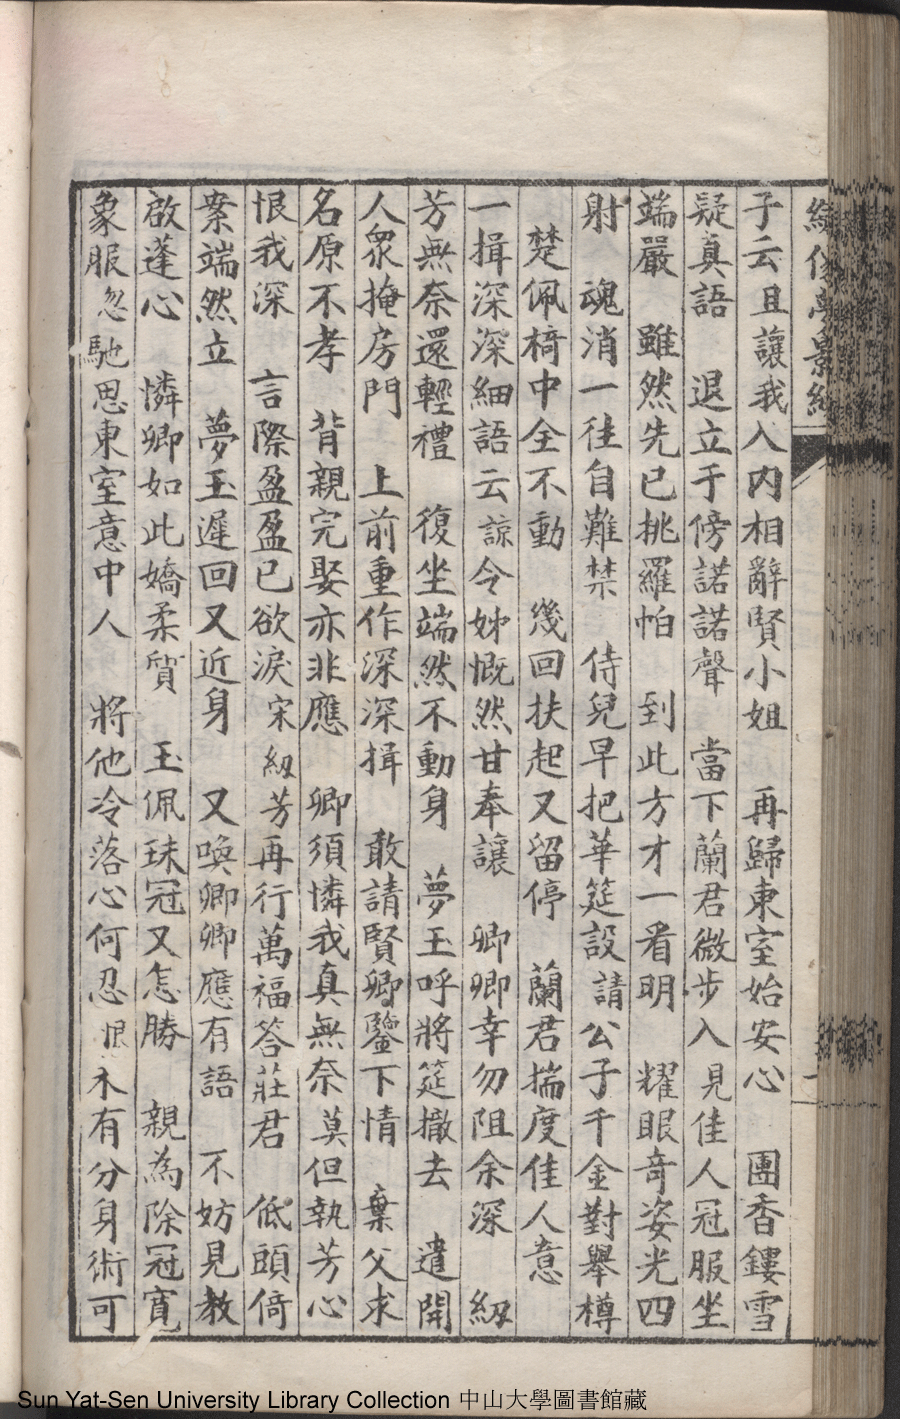 繡像夢影緣
子云且讓我入内相辭賢小姐　再歸東室始安心　團香鏤雪
疑真語　退立于傍諾諾聲　當下蘭君微步入　見佳人冠服坐
端嚴　雖然先已挑羅帕　到此方才一看明　耀眼奇姿光四
射　魂消一往自難禁　侍兒早把華筵設　請公子千金對舉樽
楚佩椅中全不動　幾回扶起又留停　蘭君揣度佳人意
一揖深深細語云　諒令姊慨然甘奉讓　卿卿幸勿阻余深　紉
芳無奈還輕禮　復坐端然不動身　夢玉呼將筵撤去　遣開
人衆掩房門　上前重作深深揖　敢請賢卿鑒下情　棄父求
名原不孝　背親完娶亦非應　卿須憐我真無奈　莫但執芳心
恨我深　言際盈盈已欲淚　宋紉芳再行萬福答莊君　低頭倚
案端然立　夢玉遲回又近身　又喚卿卿應有語　不妨見教
啟蓬心　憐卿如此嬌柔質　玉佩珠冠又怎勝　親為除冠寬
象服　忽馳思東室意中人　將他冷落心何忍　恨木有分身術可
Sun Yat-Sen University Library Collection 中山大學圖書館藏